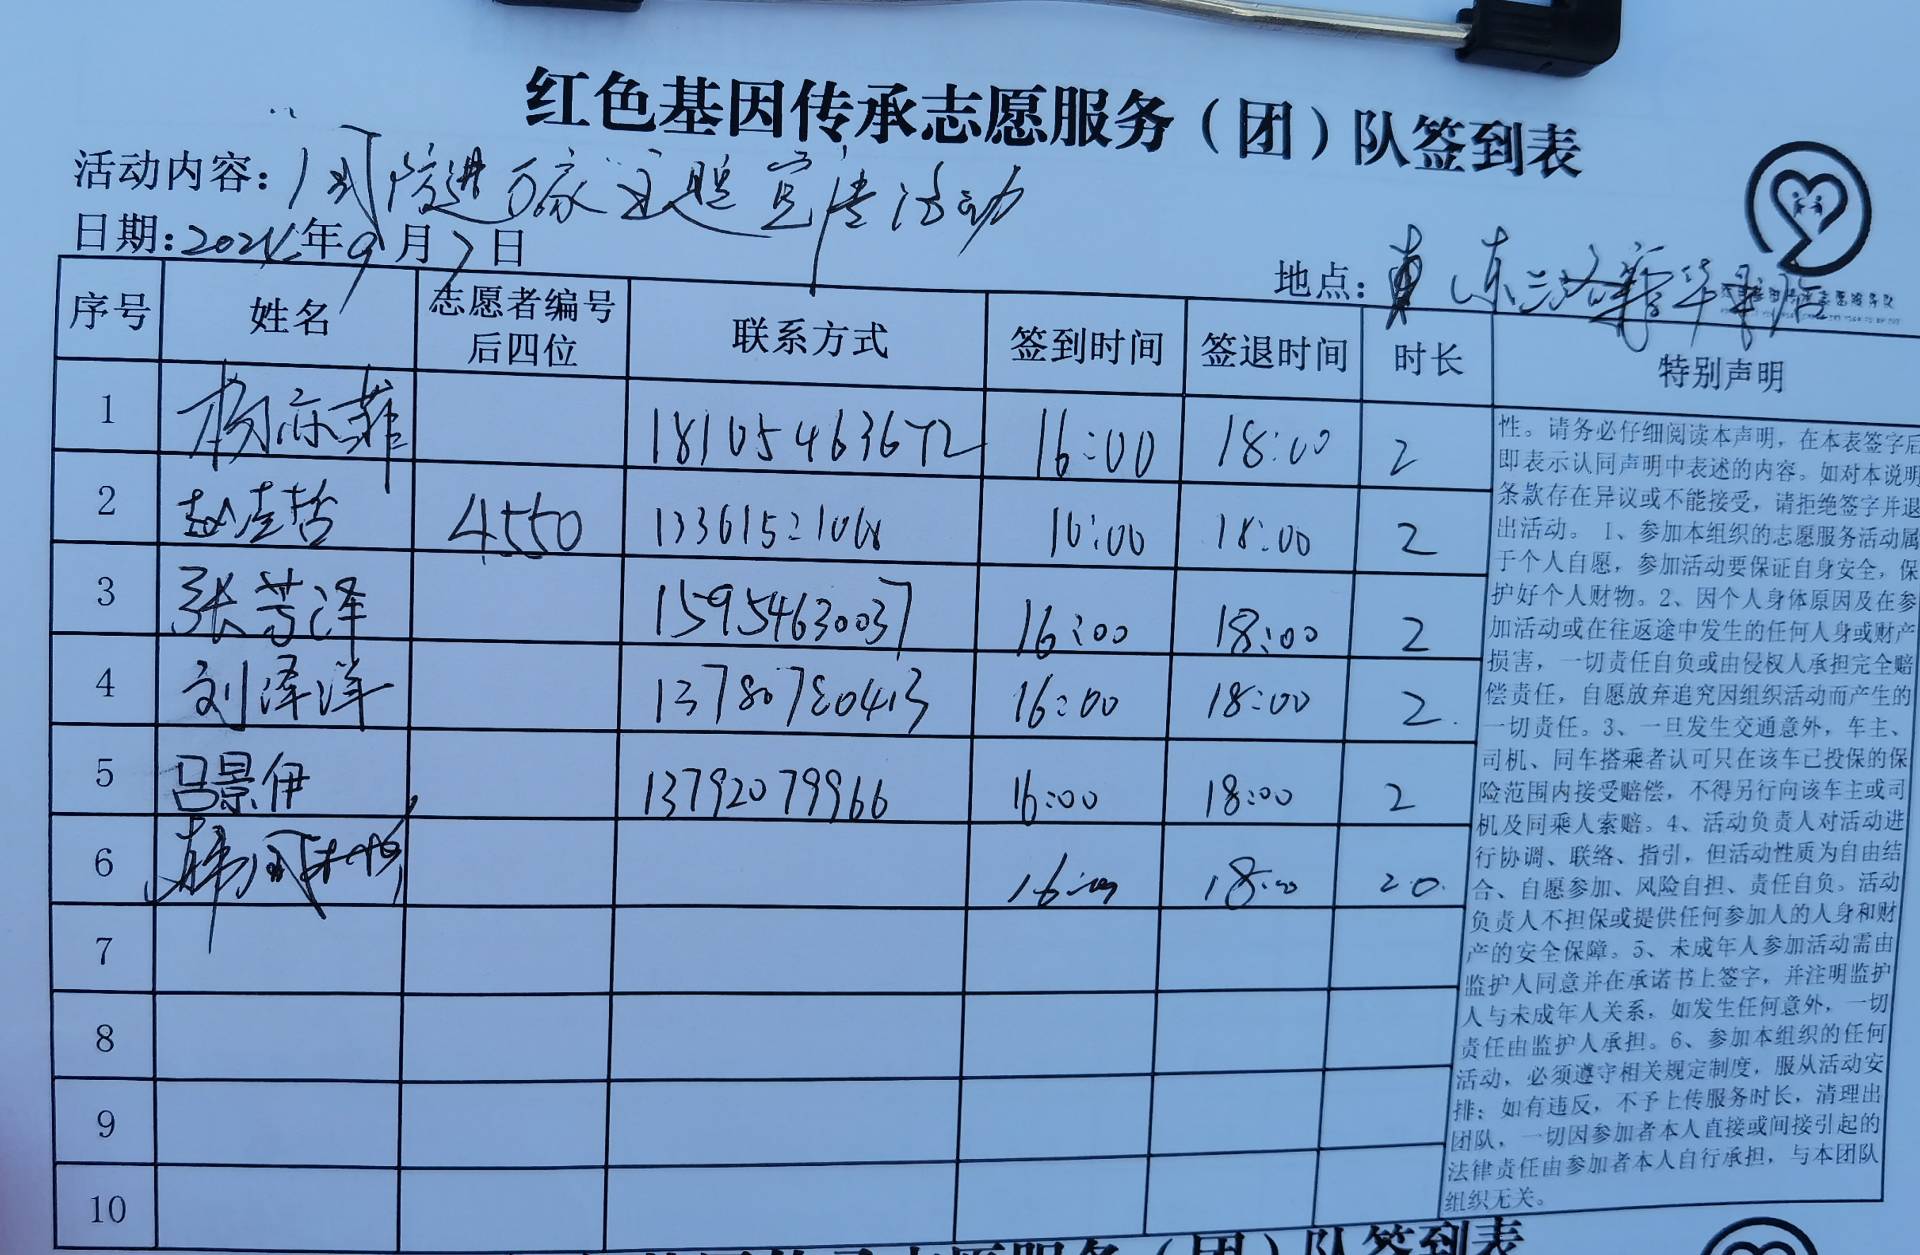 红色基因传承志愿服务（团）队签到表
活动内容：“国防进万家”主题宣传活动
日期：2024年9月7日
地点：东二路新华书店
序号 姓名 志愿者编号后四位 联系方式 签到时间 签退时间 时长 特别声明
1 杨亦菲 18105463672 16:00 18:00 2
2 赵 哲 4550 16:00 18:00 2
3 张 泽 15954630037 16:00 18:00 2
4 刘泽洋 13780780413 16:00 18:00 2
5 吕景伊 13792079966 16:00 18:00 2
6 韩 16:00 18:00 2.0
7
8
9
10
性。请务必仔细阅读本声明，在本表签字后
即表示认同声明中表述的内容。如对本说明
条款存在异议或不能接受，请拒绝签字并退
出活动。1、参加本组织的志愿服务活动属
于个人自愿，参加活动要保证自身安全，保
护好个人财物。2、因个人身体原因及在参
加活动或在往返途中发生的任何人身或财产
损害，一切责任自负或由侵权人承担完全赔
偿责任，自愿放弃追究因组织活动而产生的
一切责任。3、一旦发生交通意外，车主、
司机、同车搭乘者认可只在该车已投保的保
险范围内接受赔偿，不得另行向该车主或司
机及同乘人索赔。4、活动负责人对活动进
行协调、联络、指引，但活动性质为自由结
合、自愿参加、风险自担、责任自负。活动
负责人不担保或提供任何参加人的人身和财
产的安全保障。5、未成年人参加活动需由
监护人同意并在承诺书上签字，并注明监护
人与未成年人关系，如发生任何意外，一切
责任由监护人承担。6、参加本组织的任何
活动，必须遵守相关规定制度，服从活动安
排；如有违反，不予上传服务时长，清理出
团队，一切因参加者本人直接或间接引起的
法律责任由参加者本人自行承担，与本团队
组织无关。
红色基因传承志愿服务（团）队签到表